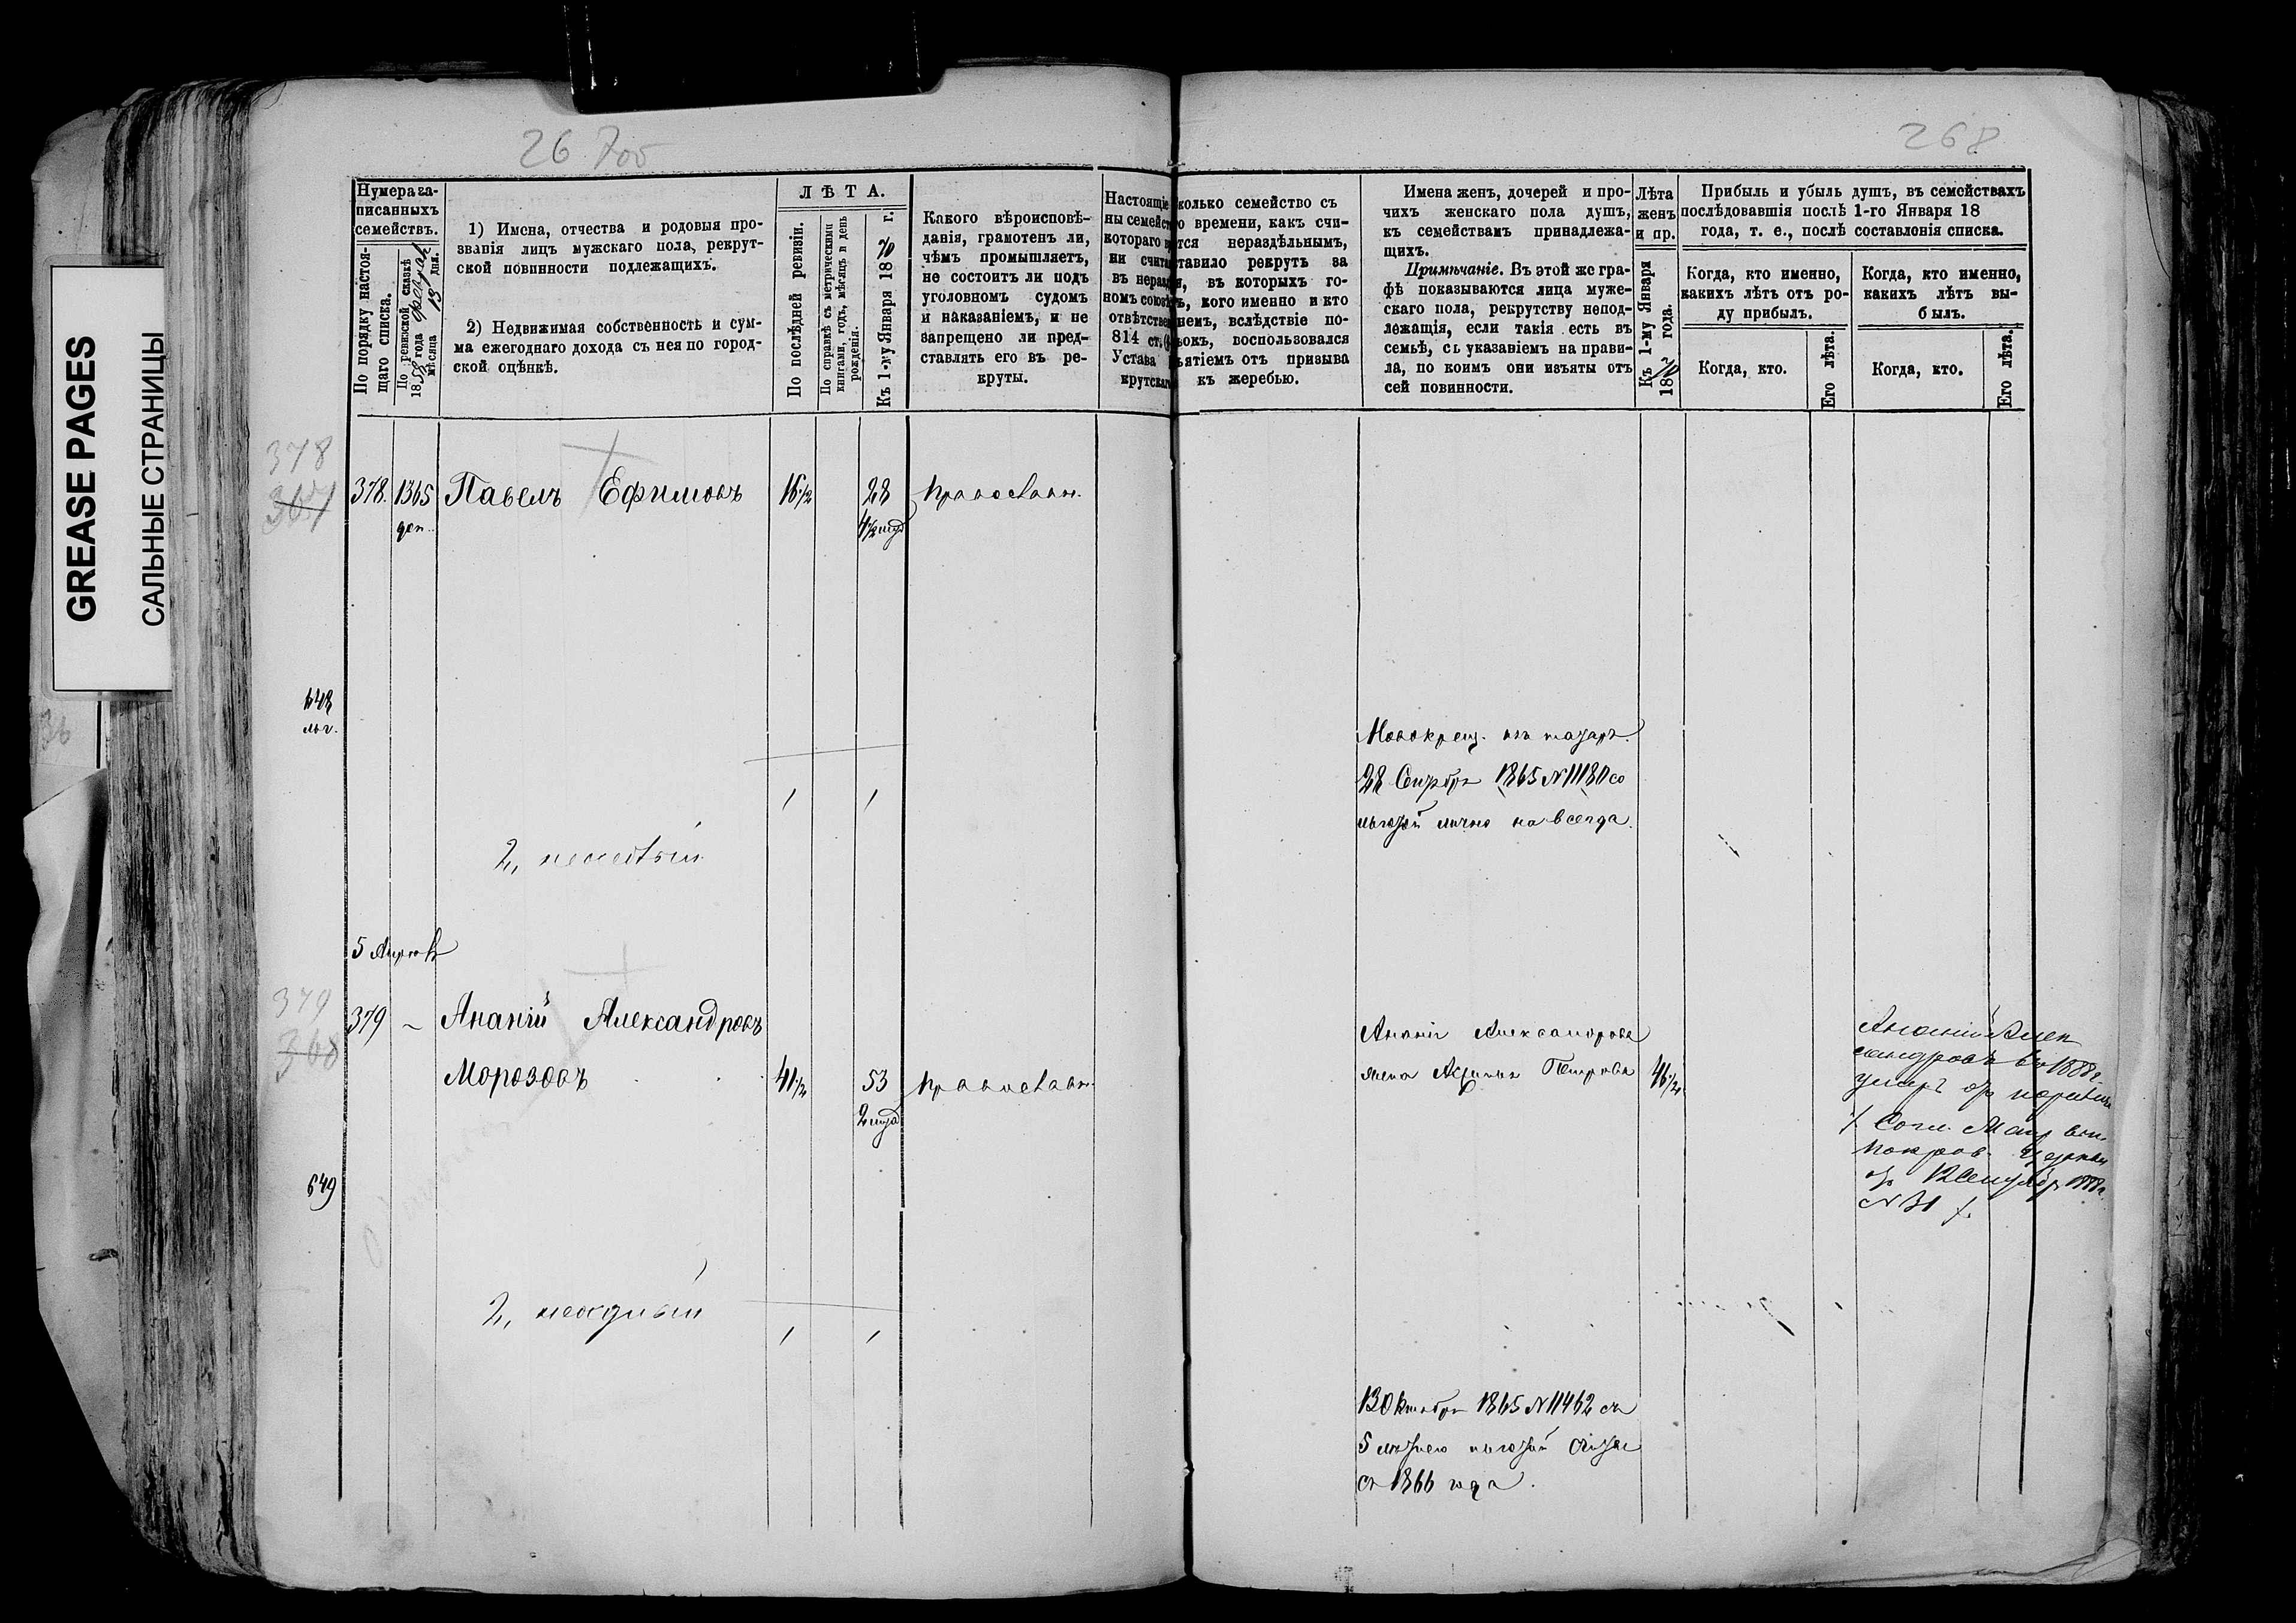 GREASE PAGES
САЛЬНЫЕ СТРАНИЦЫ
267об
268
Нумера за-
писанныхъ
семействъ.
По порядку настоя-
щаго списка.
По ревизской сказкѣ
1858 года
мѣсяца 13 дня.
1) Имена, отчества и родовыя про-
званія лицъ мужскаго пола, рекрут-
ской повинности подлежащихъ.
2) Недвижимая собственность и сум-
ма ежегоднаго дохода съ нея по город-
ской оцѣнкѣ.
ЛѢТА.
По послѣдней ревизіи.
По справкѣ съ метрическими
книгами, годъ, мѣсяцъ и день
рожденія.
Къ 1-му Января 1870 г.
Какого вѣроисповѣ-
данія, грамотенъ ли,
чѣмъ промышляетъ,
не состоитъ ли подъ
уголовномъ судомъ
и наказаніемъ, и не
запрещено ли пред-
ставлять его въ ре-
круты.
Настоящіе
ны семейст
котораго в
ни счита
въ нераз
номъ союз
отвѣтстве
814 ст.
Устава
крутскаг
колько семейство съ
о времени, какъ счи-
тся нераздѣльнымъ,
тавило рекрутъ за
я, въ которыхъ го-
ъ, кого именно и кто
немъ, вслѣдствіе по-
ьокъ, воспользовался
ьятіемъ отъ призыва
къ жеребью.
Имена женъ, дочерей и про-
чихъ женскаго пола душъ,
къ семействамъ принадлежа-
щихъ.
Примѣчаніе. Въ этой же гра-
фѣ показываются лица муже-
скаго пола, рекрутству непод-
лежащія, если такія есть въ
семьѣ, съ указаніемъ на прави-
ла, по коимъ они изъяты отъ
сей повинности.
Лѣта
женъ
и пр.
Къ 1-му Января
1870 года.
Прибыль и убыль душъ, въ семействахъ
послѣдовавшія послѣ 1-го Января 18
года, т. е., послѣ составленія списка.
Когда, кто именно,
какихъ лѣтъ отъ ро-
ду прибылъ.
Когда, кто.
Его лѣта.
Когда, кто именно,
какихъ лѣтъ вы-
былъ.
Когда, кто.
Его лѣта.
378
367
378. 1365 Павелъ Ефимовъ 16½ 28 Православн.
доп. 4½ мѣс
648
льг.
Новокрещ. изъ татаръ.
28 Сентября 1865 № 11180 со
льготой лично навсегда.
1 1
5 Апрѣля
379
368
379 – Ананій Александровъ
Морозовъ 41½ 53 Православн.
Ананія Александрова
жена Петрова 46½
Ананій Алек
сандровъ въ 1888 г.
умеръ
Согл.
Покров. Церкви
1888 г.
№ 31
649
1 1
13 Октября 1865 № 11462 съ
5 лѣтнею льготой считая
съ 1866 года.